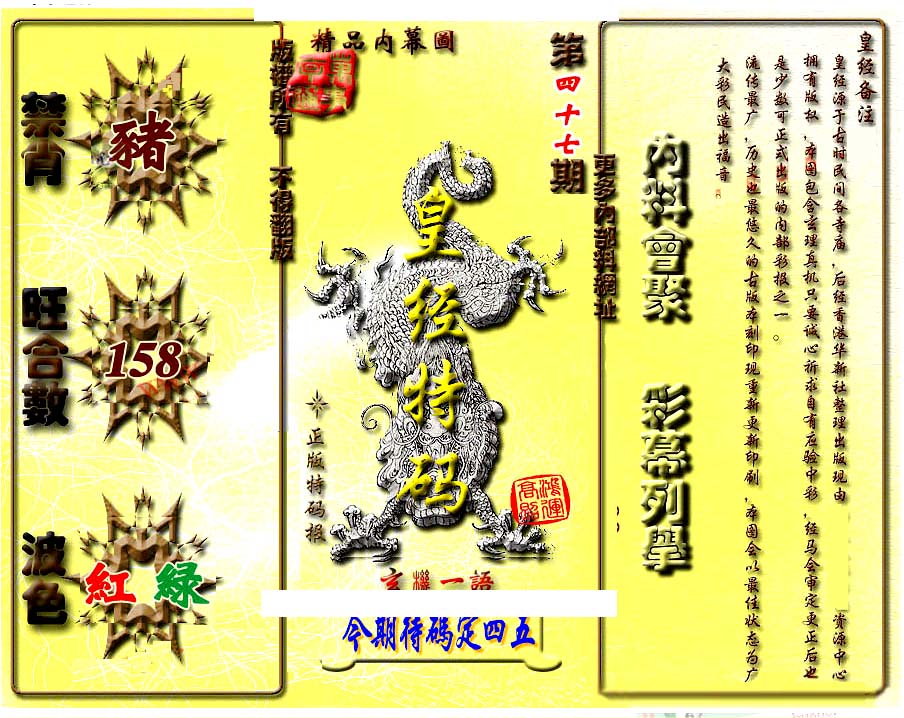 精品内幕圖
第四十七期
版權所有 不得翻版
更多內部料網址
禁肖
豬
旺合數
158
波色
紅 綠
皇经特码
正版特码报
鴻運高照
玄機一語
今期待碼定四五
內料會聚
彩幕列舉
皇经备注
皇经源于古时民间各寺庙，后经香港华新社整理出版现由
资源中心
拥有版权，本图包含玄理真机只要诚心祈求自有应验中彩，经马会审定更正后也
是少数可正式出版的内部彩报之一。
流传最广，历史也最悠久的古版本刻印现重新更新印刷，本图会以最佳状态为广
大彩民造出福音